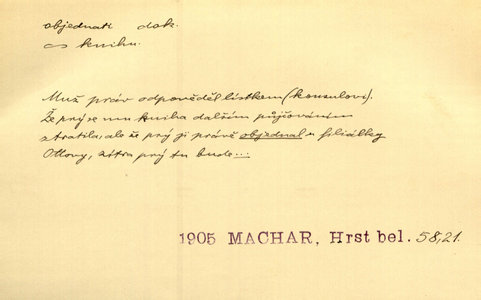 objednati dok.
co knihu.
Muž práv odpověděl lístkem (konsulovi).
Že prý se mu kniha dalším půjčováním
ztratila, ale že prý ji právě objednal u filiálky
Ottovy, zítra prý tu bude...
1905 MACHAR, Hrst bel. 58,21.